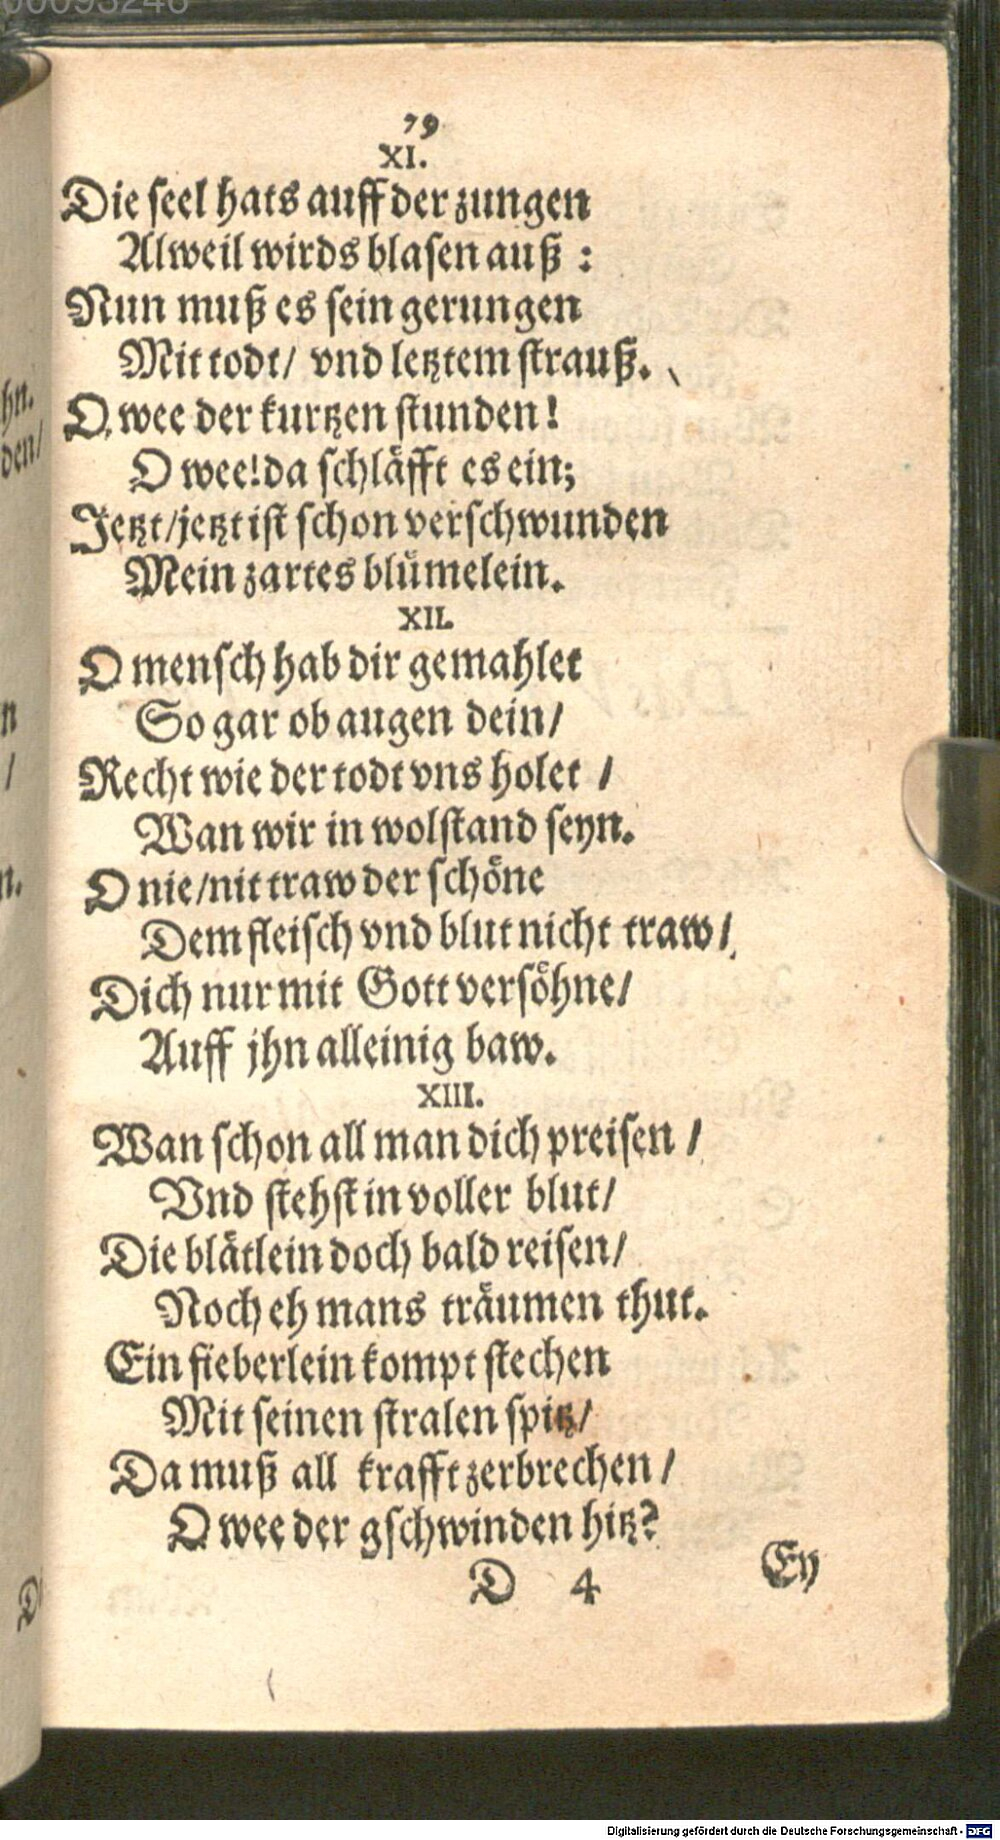 79
XI.
Die seel hats auff der zungen
Alweil wirds blasen auß :
Nun muß es sein gerungen
Mit todt/ vnd letztem strauß.
O wee der kurtzen stunden!
O wee! da schläfft es ein;
Jetzt/jetzt ist schon verschwunden
Mein zartes blümelein.
XII.
O mensch hab dir gemahlet
So gar ob augen dein/
Recht wie der todt vns holet /
Wan wir in wolstand seyn.
O nie/nit traw der schöne
Dem fleisch vnd blut nicht traw/
Dich nur mit Gott versöhne/
Auff jhn alleinig baw.
XIII.
Wan schon all man dich preisen /
Vnd stehst in voller blut/
Die blätlein doch bald reisen/
Noch eh mans träumen thut.
Ein fieberlein kompt stechen
Mit seinen stralen spitz/
Da muß all krafft zerbrechen /
O wee der gschwinden hitz?
D 4 Ey
hn.
den/
n
/
n.
D
Digitalisierung gefördert durch die Deutsche Forschungsgemeinschaft - DFG